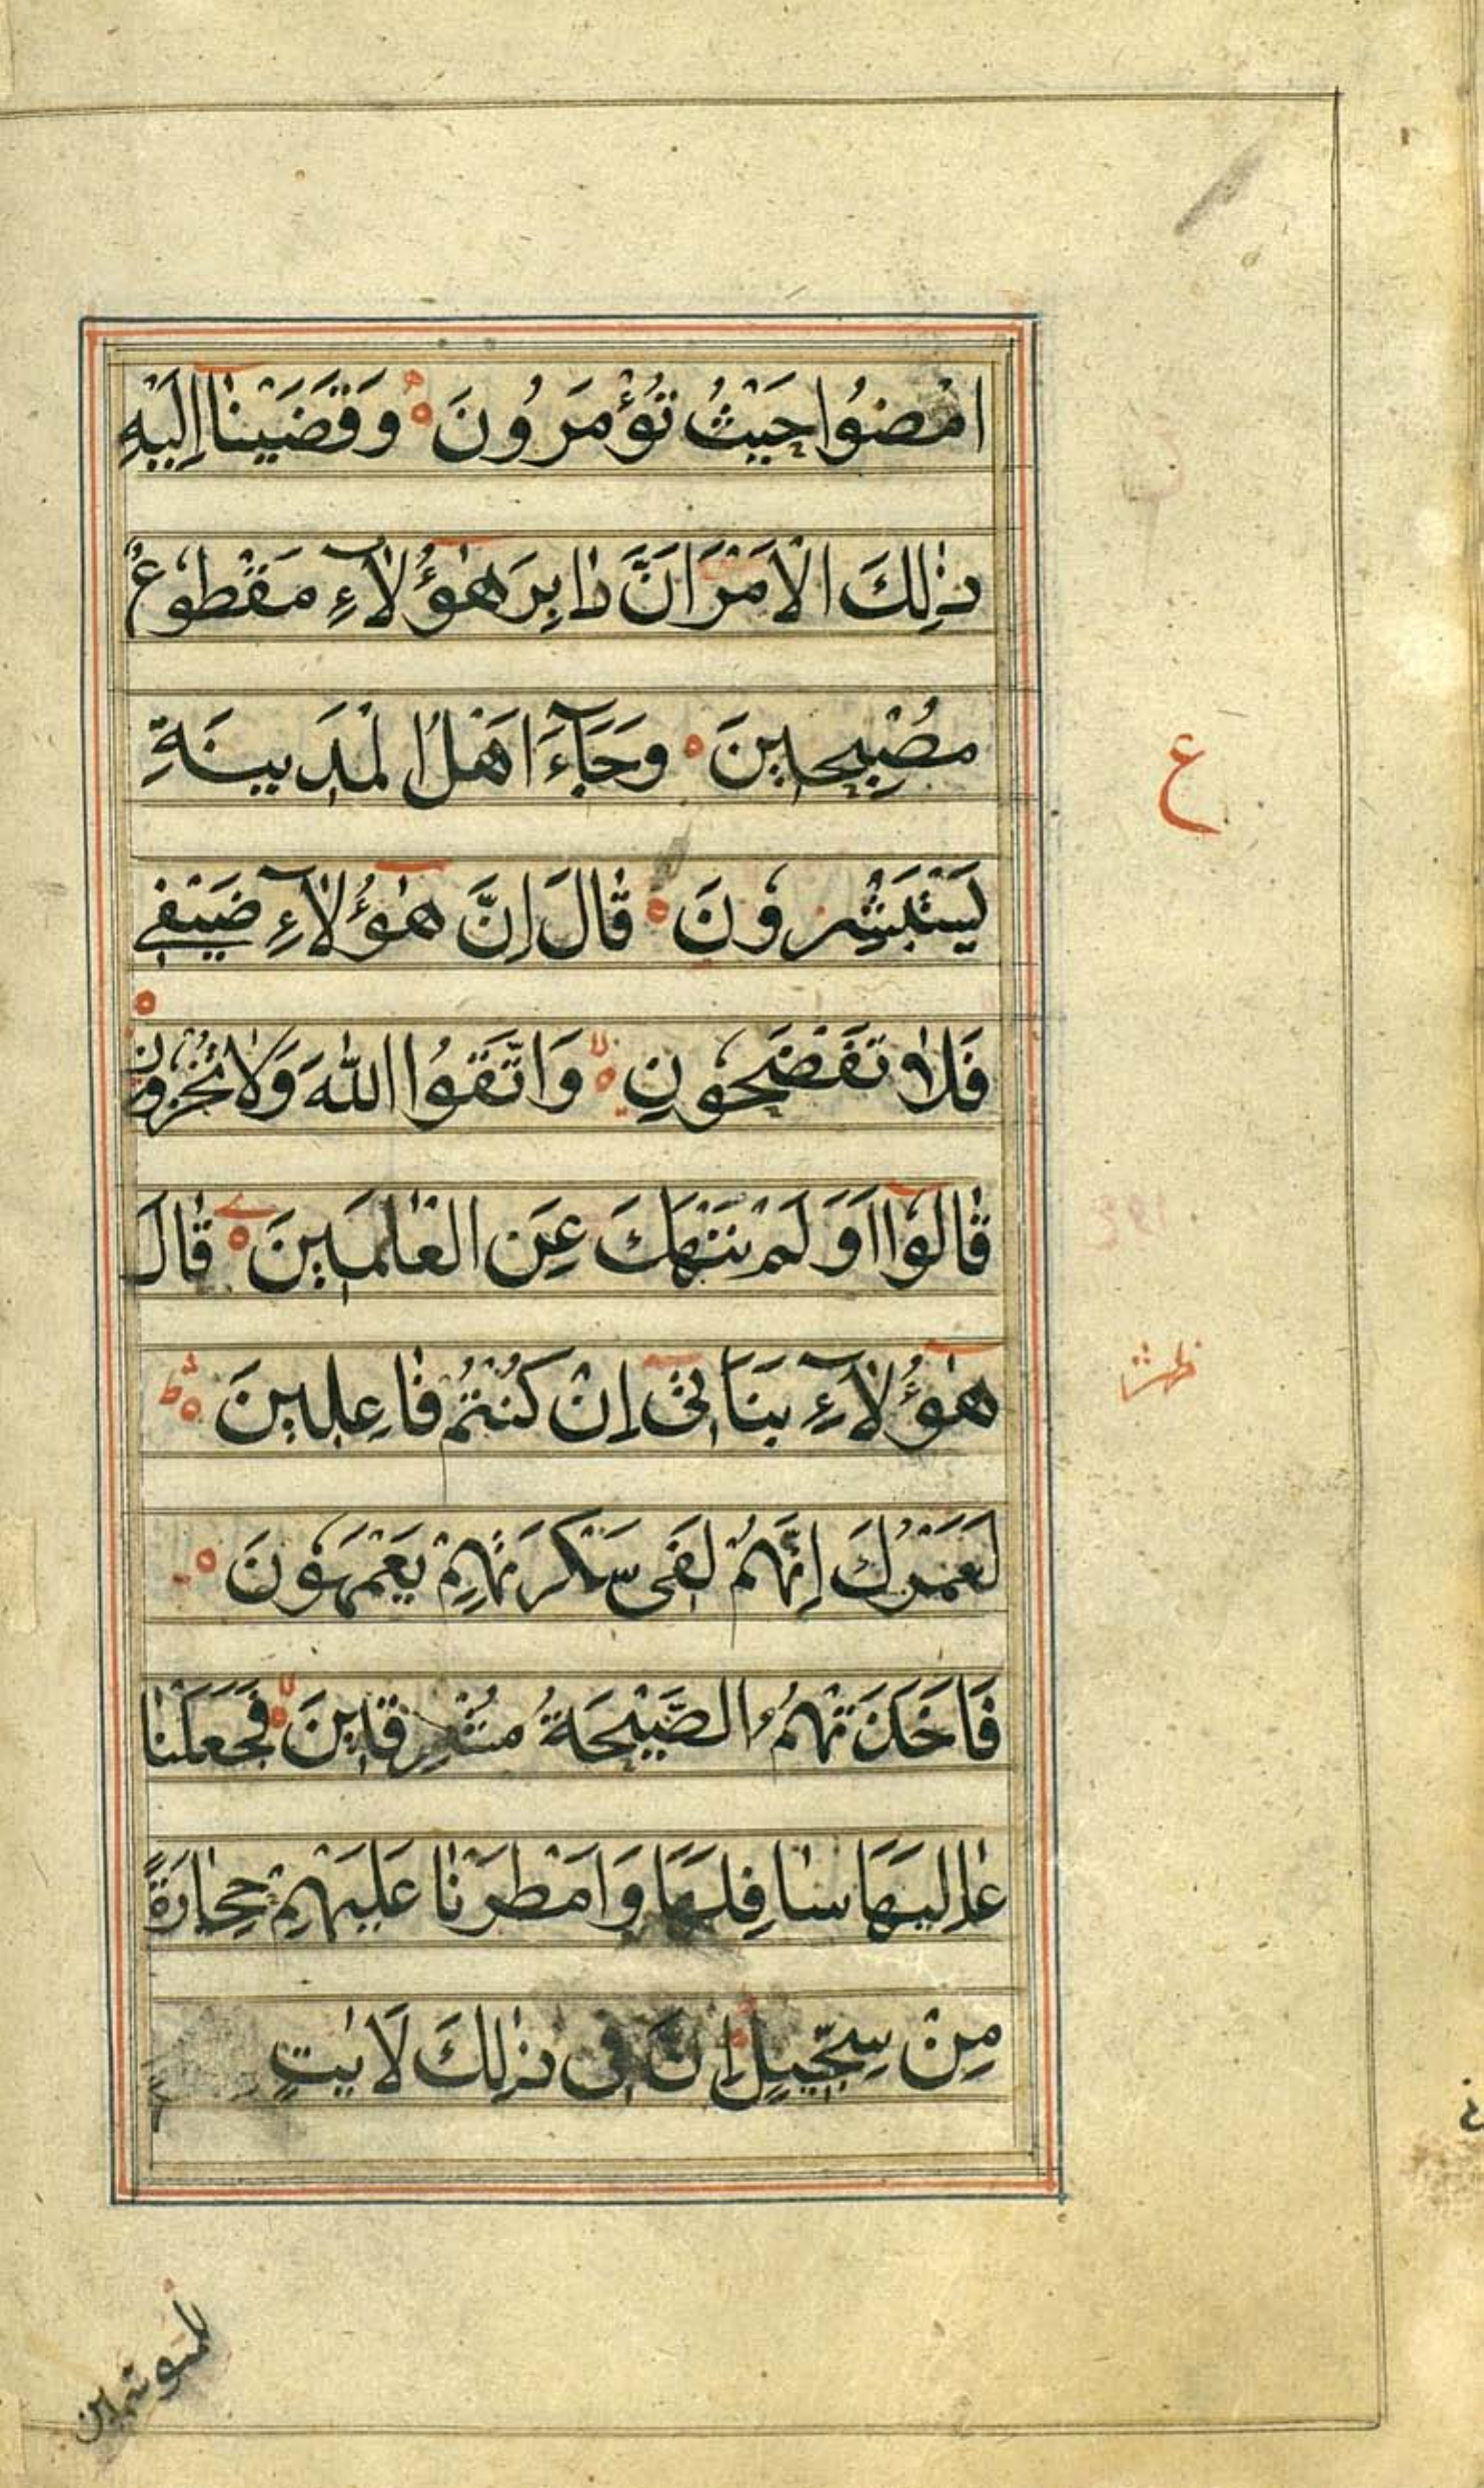 امْضُوا حَيْثُ تُؤْمَرُونَ ۝ وَقَضَيْنَا إِلَيْهِ
ذٰلِكَ الْاَمْرَ اَنَّ دَابِرَ هٰؤُلَاءِ مَقْطُوعٌ
مُصْبِحِينَ ۝ وَجَآءَ اَهْلُ الْمَدِينَةِ
يَسْتَبْشِرُونَ ۝ قَالَ اِنَّ هٰؤُلَآءِ ضَيْفِي
فَلَا تَفْضَحُونِ ۝ وَاتَّقُوا اللّٰهَ وَلَا تُخْزُونِ ۝
قَالُوٓا اَوَلَمْ نَنْهَكَ عَنِ الْعٰلَمِينَ ۝ قَالَ
هٰؤُلَآءِ بَنَاتِىٓ اِنْ كُنْتُمْ فَاعِلِينَ ۝ ط
لَعَمْرُكَ اِنَّهُمْ لَفِى سَكْرَتِهِمْ يَعْمَهُونَ ۝
فَاَخَذَتْهُمُ الصَّيْحَةُ مُشْرِقِينَ ۝ لا فَجَعَلْنَا
عَالِيَهَا سَافِلَهَا وَاَمْطَرْنَا عَلَيْهِمْ حِجَارَةً
مِنْ سِجِّيلٍ اِنَّ فِى ذٰلِكَ لَاٰيٰتٍ
ع
للمتوسمين